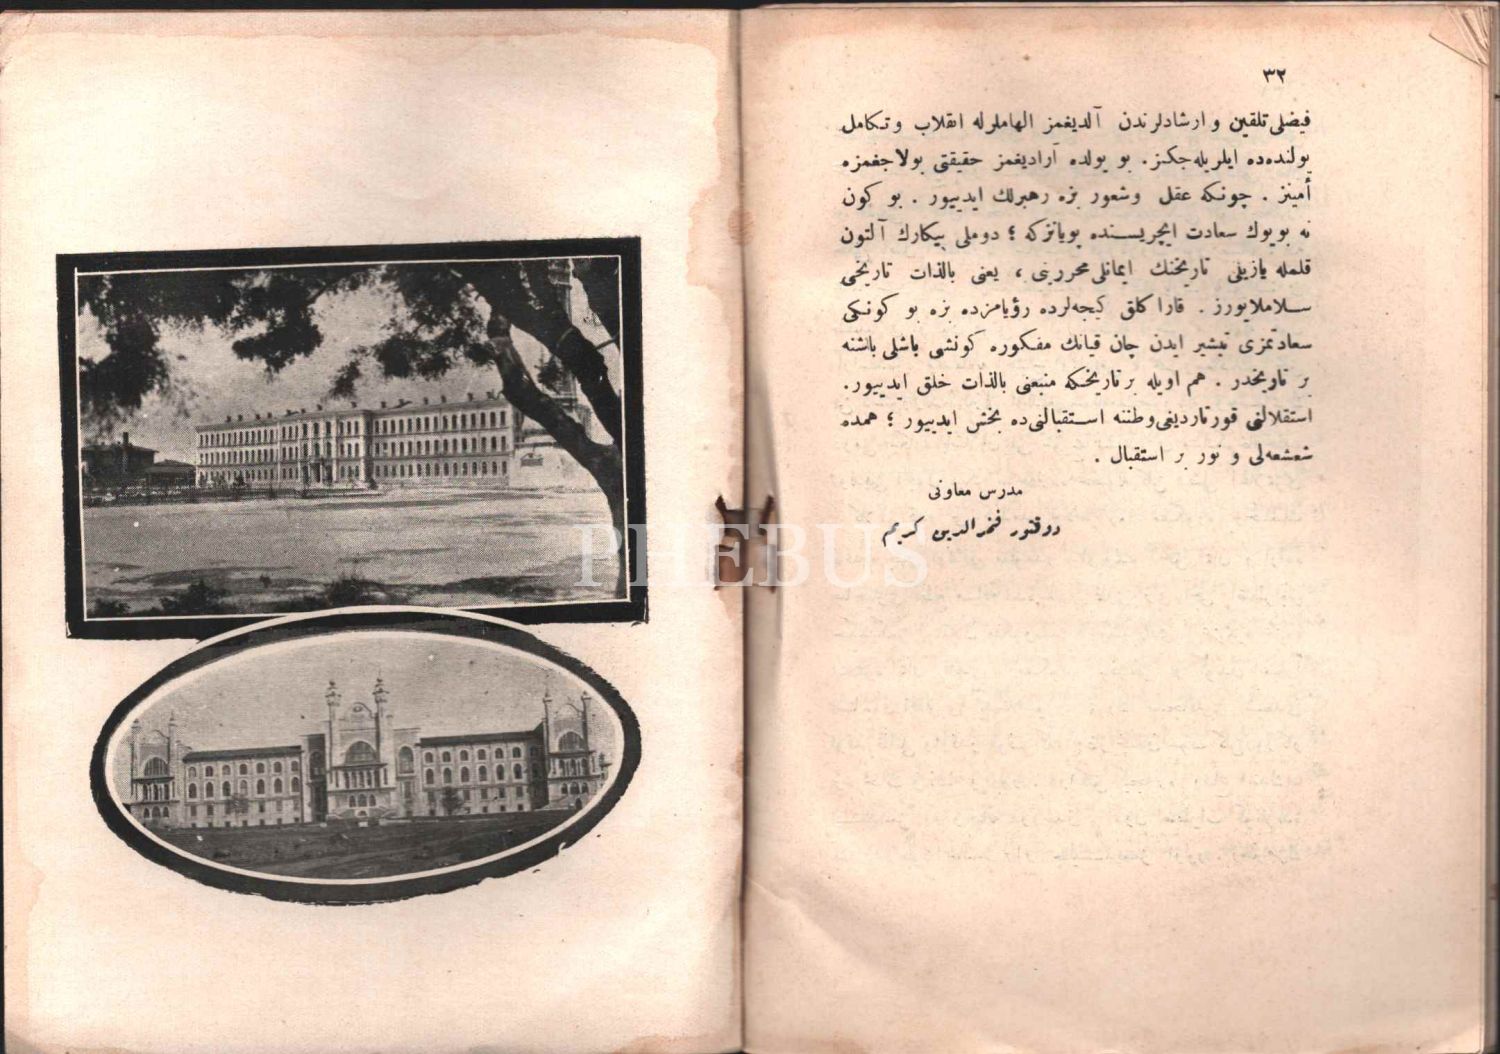 ٣٢
فيضلى تلقين و ارشادلرندن آلديغمز الهاملرله انقلاب و تكامل
يولنده ده ايلريله جكز. بو يولده آراديغمز حقيقتى بولاجغمزه
أمينز . چونكه عقل وشعور بزه رهبرلك ايدييور . بو كون
نه بويوك سعادت ايچريسنده يويانزكه ؛ دوملى بيكارك آلتون
قلمله يازيلى تاريخنك ايمانلى محررينى ، يعنى بالذات تاريخى
سلاملايورز . قارا كلق كيجه لرده رؤيامزده بزه بو كونكى
سعادتمزى تبشير ايدن چان قيانك مفكوره كونشى باشلى باشنه
بر تاريخدر . هم اويله بر تاريخكه منبعنى بالذات خلق ايدييور.
استقلالنى قورتارديغى وطننه استقبالنى ده بخش ايدييور ؛ همده
شعشعه لى و نور بر استقبال .
مدرس معاونى
دوقتور فخرالدين كريم
PHEBUS